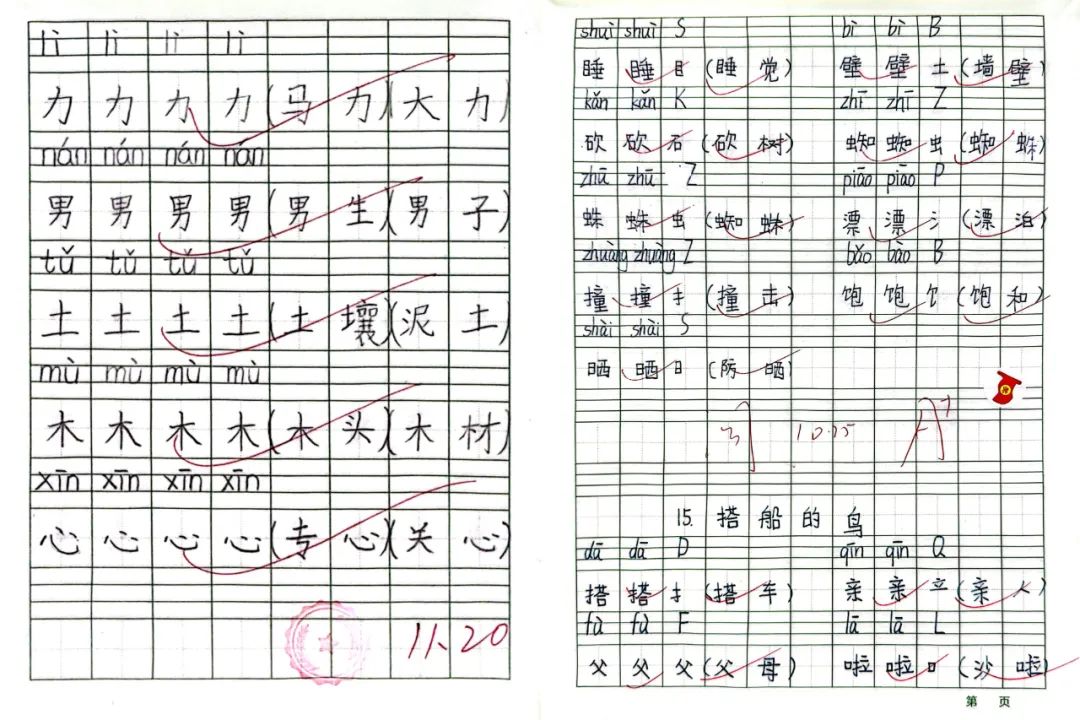 lì lì lì lì
力 力 力 力 (马 力)(大 力)
nán nán nán nán
男 男 男 男 (男 生)(男 子)
tǔ tǔ tǔ tǔ
土 土 土 土 (土 壤)(泥 土)
mù mù mù mù
木 木 木 木 (木 头)(木 材)
xīn xīn xīn xīn
心 心 心 心 (专 心)(关 心)
11.20
shuì shuì S bì bì B
睡 睡 目 (睡 觉) 壁 壁 土 (墙 壁)
kǎn kǎn K zhī zhī Z
砍 砍 石 (砍 树) 蜘 蜘 虫 (蜘 蛛)
zhū zhū Z piāo piāo P
蛛 蛛 虫 (蜘 蛛) 漂 漂 氵 (漂 泊)
zhuàng zhuàng Z bǎo bǎo B
撞 撞 扌 (撞 击) 饱 饱 饣 (饱 和)
shài shài S
晒 晒 日 (防 晒)
10.25 A+
15. 搭 船 的 鸟
dā dā D qīn qīn Q
搭 搭 扌 (搭 车) 亲 亲 立 (亲 人)
fù fù F lā lā L
父 父 父 (父 母) 啦 啦 口 (沙 啦)
第 页